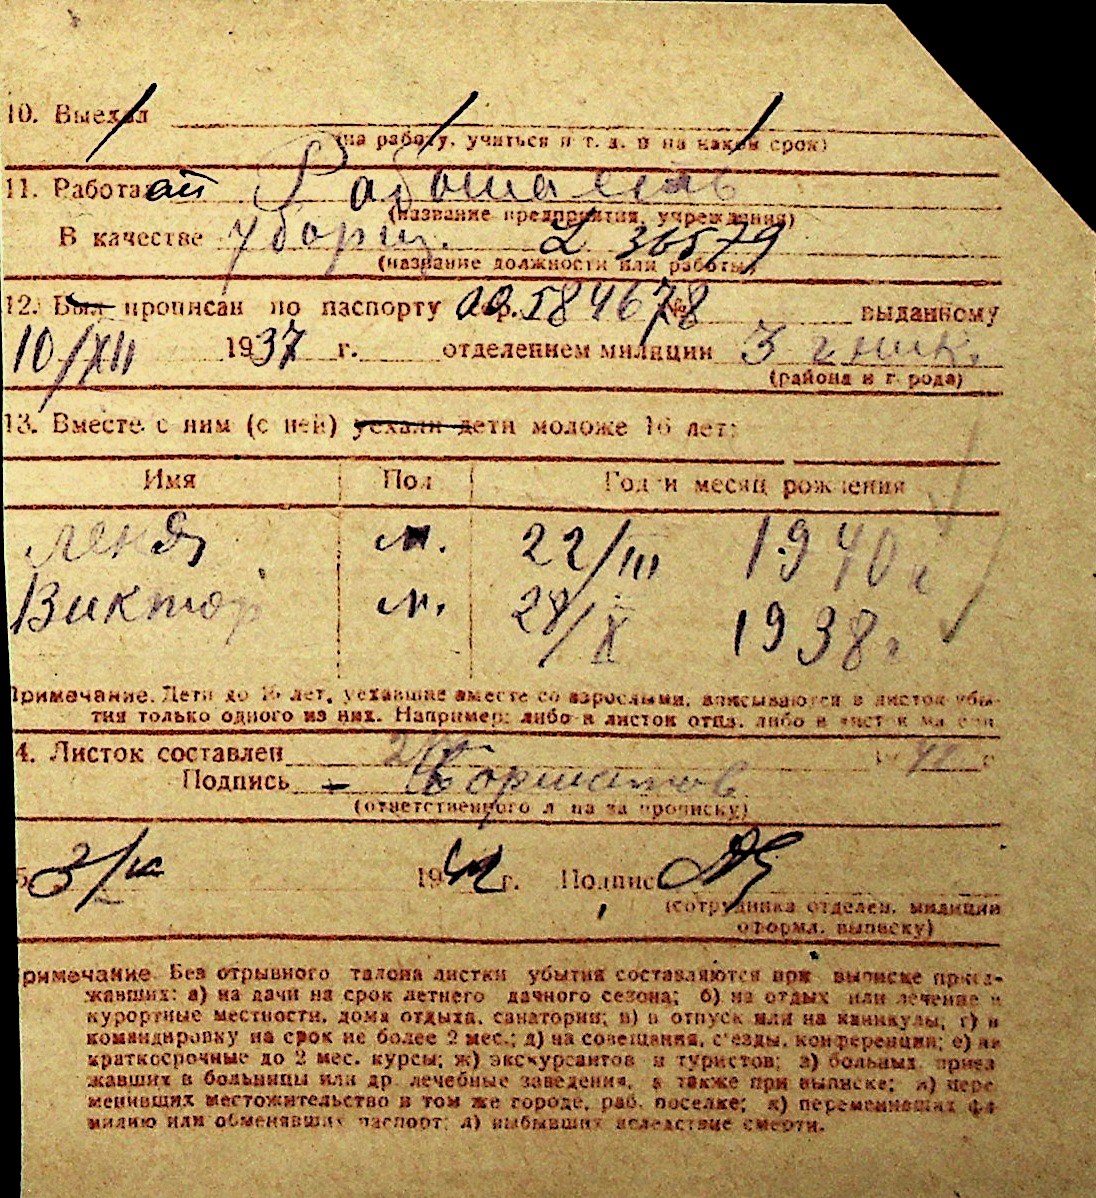 10. Выехал
(на работу, учиться и т. д. и на какой срок)
11. Работа
(название предприятия, учреждения)
В качестве уборщ. 36579
(название должности или работы)
12. Был прописан по паспорту сер. 584678 № выданному
10/XII 1937 г. отделением милиции 3 г. ник.
(района и города)
13. Вместе с ним (с ней) уехали дети моложе 16 лет:
Имя Пол Год и месяц рождения
Леня м. 22/III 1940 г
Виктор м. 28/X 1938 г
Примечание. Дети до 16 лет, уехавшие вместе со взрослыми, вписываются в листок убы-
тия только одного из них. Например: либо в листок отца, либо в листок матери.
14. Листок составлен 41 г
Подпись
(ответственного лица за прописку)
19 г. Подпись
(сотрудника отделен. милиции
оформл. выписку)
Примечание. Без отрывного талона листки убытия составляются при выписке приез-
жавших: а) на дачи на срок летнего дачного сезона; б) на отдых или лечение в
курортные местности, дома отдыха, санатории; в) в отпуск или на каникулы; г) в
командировку на срок не более 2 мес.; д) на совещания, с'езды, конференции; е) на
краткосрочные до 2 мес. курсы; ж) экскурсантов и туристов; з) больных, приез
жавших в больницы или др. лечебные заведения, а также при выписке; и) пере
менивших местожительство в том же городе, раб. поселке; к) переменивших фа-
милию или обменявших паспорт; л) выбывших вследствие смерти.